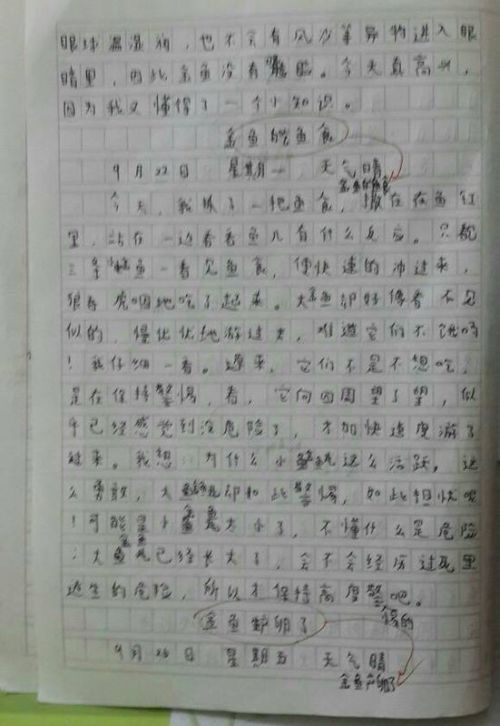 眼球湿湿润，也不会有风沙等异物进入眼
睛里，因此金鱼没有眼脸。今天真高兴，
因为我又懂得了一个小知识。
金鱼的鱼食
9月22日 星期一 天气晴
金鱼的鱼食
今天，我拣了一把鱼食，撒在在鱼缸
里，站在一边看看鱼儿有什么反应。只
三条 鱼一看见鱼食，便快速的冲过来，
狼吞虎咽地吃了起来。大金鱼却好像看不见
似的，慢优优地游过去，难道它们不饿吗
！我仔细一看。原来，它们不是不想吃，
是在保持警惕，看，它向四周望了望，似
乎已经感觉到没危险了，才加快速度游了
过来。我想：为什么小金鱼这么活跃。这
么勇敢，大金鱼却如此警惕，如此担忧呢
！可能是小金鱼太小了，不懂什么是危险
；大金鱼已经长大了，会不会经历过死里
逃生的危险，所以才保持高度警 吧。
惕的
金鱼产卵了
9月26日 星期五 天气晴
金鱼产卵了